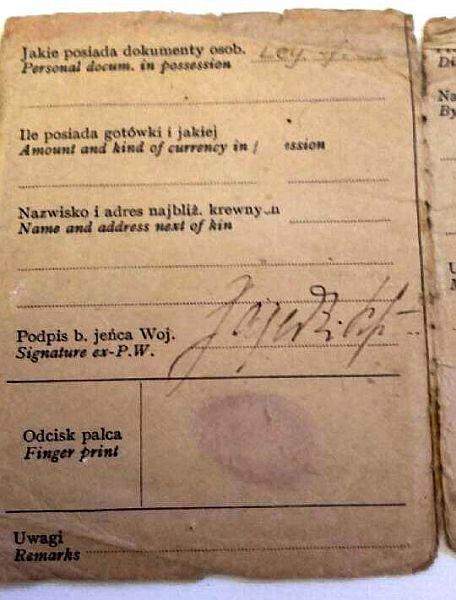 Jakie posiada dokumenty osob.
Personal docum. in possession
Ile posiada gotówki i jakiej
Amount and kind of currency in ssion
Nazwisko i adres najbliż. krewnych
Name and address next of kin
Podpis b. jeńca Woj.
Signature ex-P.W.
Odcisk palca
Finger print
Uwagi
Remarks
Di
Na
By
U